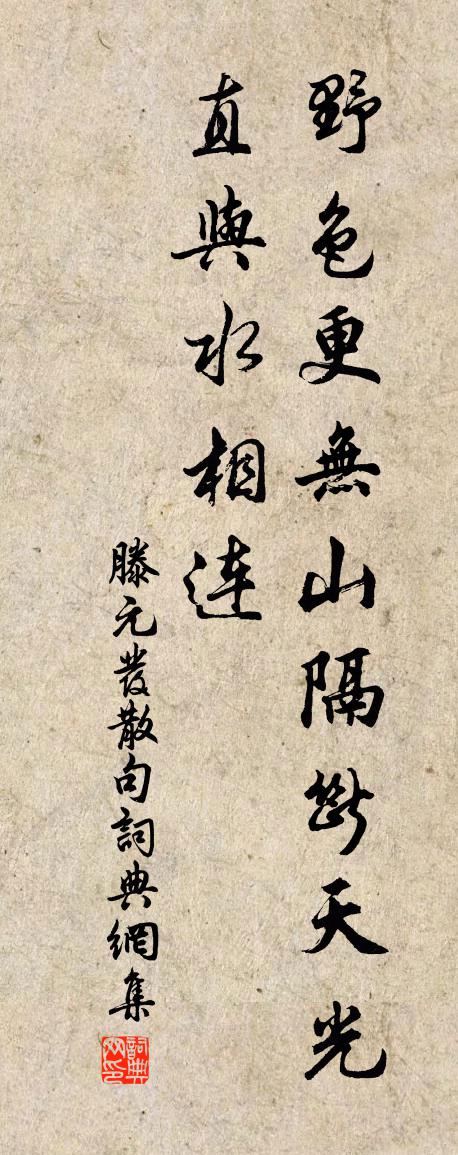 野色更無山隔斷天光
直與水相連
滕元發散句詞典網集
詞典網印